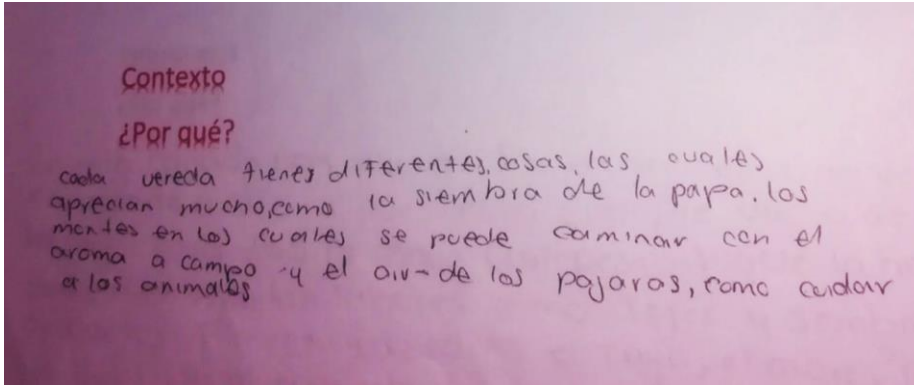 Contexto
¿Por qué?
cada vereda tienes diferentes, cosas, las cuales
aprecian mucho, como la siembra de la papa. los
montes en los cuales se puede caminar con el
aroma a campo y el air de los pajaros, como cuidar
a los animales